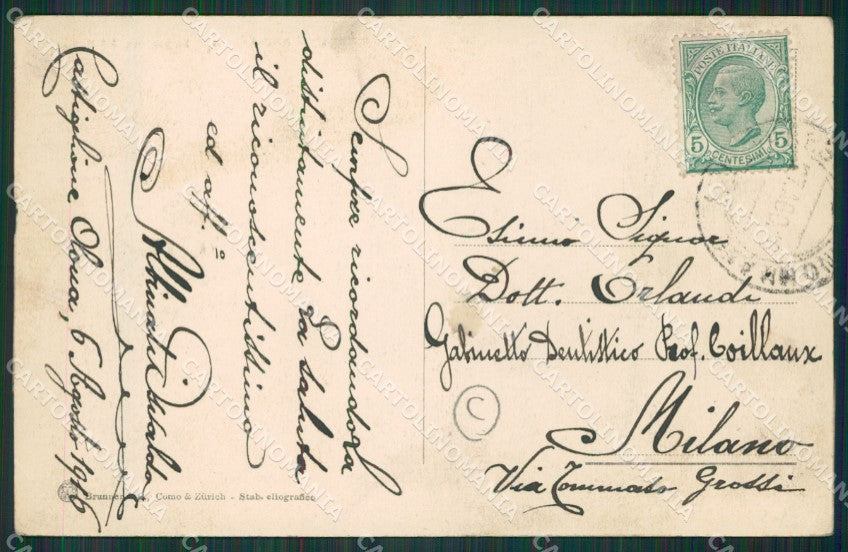 Sempre ricordandola
distintamente La saluta
il riconoscentissimo
ed aff.o
Castiglione Olona, 6 Agosto
Esimio Signor
Dott. Orlandi
Gabinetto Dentistico Prof. Coillaux
Milano
Via Tommaso Grossi
C
POSTE ITALIANE
5 5
CENTESIMI
Como & Zürich - Stab. eliografico
CARTOLINOMANIA